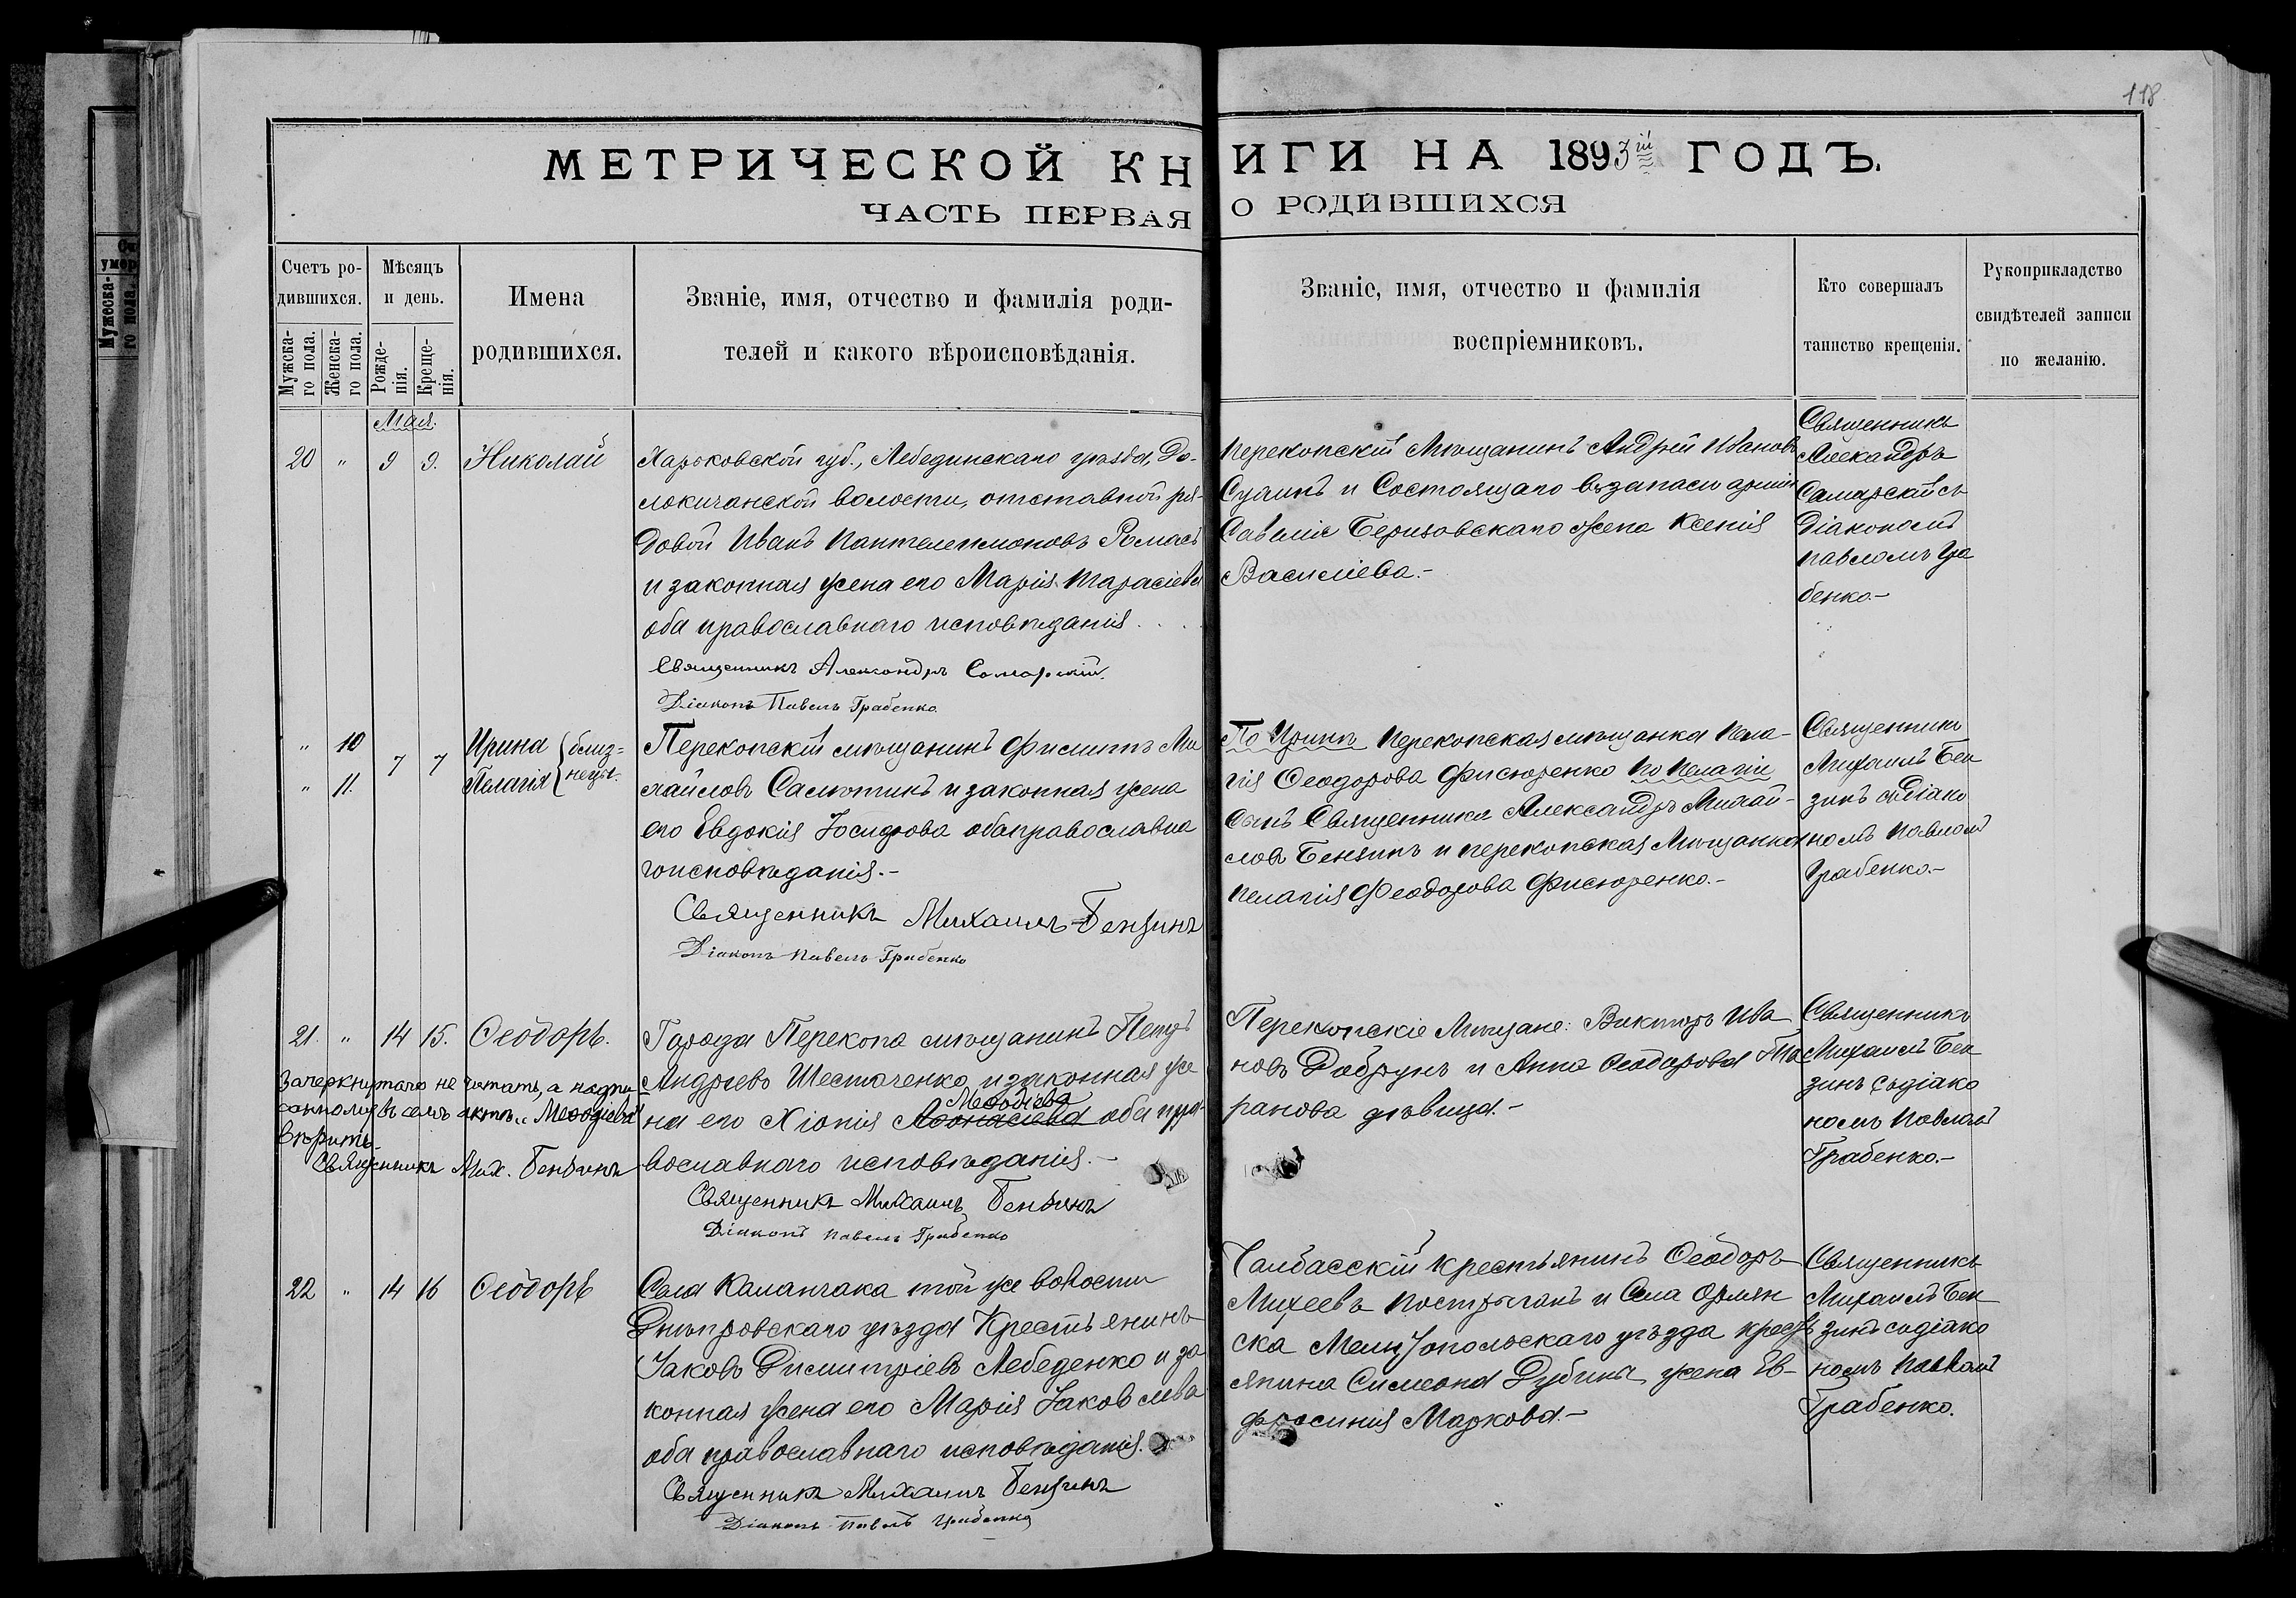 118
МЕТРИЧЕСКОЙ КНИГИ НА 1893ій ГОДЪ.
ЧАСТЬ ПЕРВАЯ О РОДИВШИХСЯ
Счетъ ро-
дившихся.
Мужска-
го пола.
Женска-
го пола.
Мѣсяцъ
и день.
Рожде-
нія.
Креще-
нія.
Имена
родившихся.
Званіе, имя, отчество и фамилія роди-
телей и какого вѣроисповѣданія.
Званіе, имя, отчество и фамилія
воспріемниковъ.
Кто совершалъ
таинство крещенія.
Рукоприкладство
свидѣтелей записи
по желанію.
Мая.
20 " 9 9. Николай
Харьковской губ., Лебединскаго уѣзда,
волости, отставной ря-
довой Иванъ Пантелеимоновъ Ромасъ
и законная жена его Марія Тарасіева
оба православнаго исповѣданія
Священникъ Александръ Самарскій.
Діаконъ Павелъ Грабенко.
Перекопскій Мѣщанинъ Андрей Ивановъ
и Состоящаго въ запасѣ арміи
Савелія Беризовскаго жена Ксенія
Василіева.-
Священникъ
Александръ
Самарскій съ
Діакономъ
Павломъ Гра
бенко.-
" 10 7 7 Ирина близ-
" 11. Пелагія нецы.
Перекопскій мѣщанинъ Филиппъ Ми
хайловъ Самотинъ и законная жена
его Евдокія Іосифова оба православна
го исповѣданія.-
Священникъ Михаилъ Бензинъ
Діаконъ Павелъ Грабенко
По Иринѣ Перекопская мѣщанка Пела-
гія Ѳеодорова Фисюренко по Пелагіи
Сынъ Священника Александръ Михай-
ловъ Бензинъ и перекопская Мѣщанка
Пелагія Феодорова Фисюренко.-
Священникъ
Михаилъ Бен
зинъ съ Діако
номъ Павломъ
Грабенко.-
21. " 14 15. Ѳеодоръ.
Города Перекопа мѣщанинъ Петръ
Андреевъ Шестаченко и законная же
Меѳодіева
на его Хіонія Аѳонасіева оба пра-
вославнаго исповѣданія.-
Священникъ Михаилъ Бензинъ
Діаконъ Павелъ Грабенко
Зачеркнутаго не читать, а надпи
санному въ семъ актѣ "Меѳодіева"
вѣрить.
Священникъ Мих. Бензинъ
Перекопскіе Мѣщане: Викторъ Ива
новъ Добрунъ и Анна Ѳеодорова Та
ранова дѣвица.-
Священникъ
Михаилъ Бен
зинъ съ діако
номъ Павломъ
Грабенко.-
22 " 14 16 Ѳеодоръ
Села Каланчака той же волости
Днѣпровскаго уѣзда Крестьянинъ
Іаковъ Димитріевъ Лебеденко и за
конная жена его Марія Іаковлева
оба православнаго исповѣданія.
Священникъ Михаилъ Бензинъ
Діаконъ Павелъ Грабенко
Чалбасскій крестьянинъ Ѳеодоръ
Михеевъ Постриганъ и Села Армян
ска Мелитопольскаго уѣзда кресть
янина Симеона Дубины жена Ев-
фросинія Маркова.-
Священникъ
Михаилъ Бен
зинъ съ діако
номъ Павломъ
Грабенко.